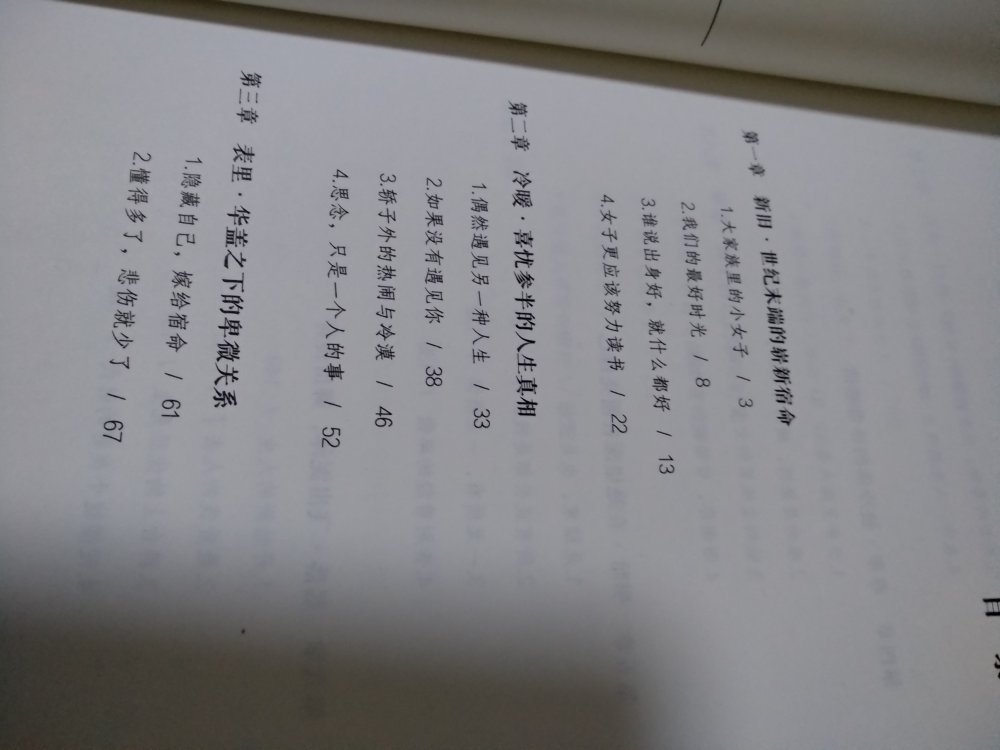 目 录
第一章 新旧·世纪末端的崭新宿命
1.大家族里的小女子 / 3
2.我们的最好时光 / 8
3.谁说出身好，就什么都好 / 13
4.女子更应该努力读书 / 22
第二章 冷暖·喜忧参半的人生真相
1.偶然遇见另一种人生 / 33
2.如果没有遇见你 / 38
3.轿子外的热闹与冷漠 / 46
4.思念，只是一个人的事 / 52
第三章 表里·华盖之下的卑微关系
1.隐藏自己，嫁给宿命 / 61
2.懂得多了，悲伤就少了 / 67